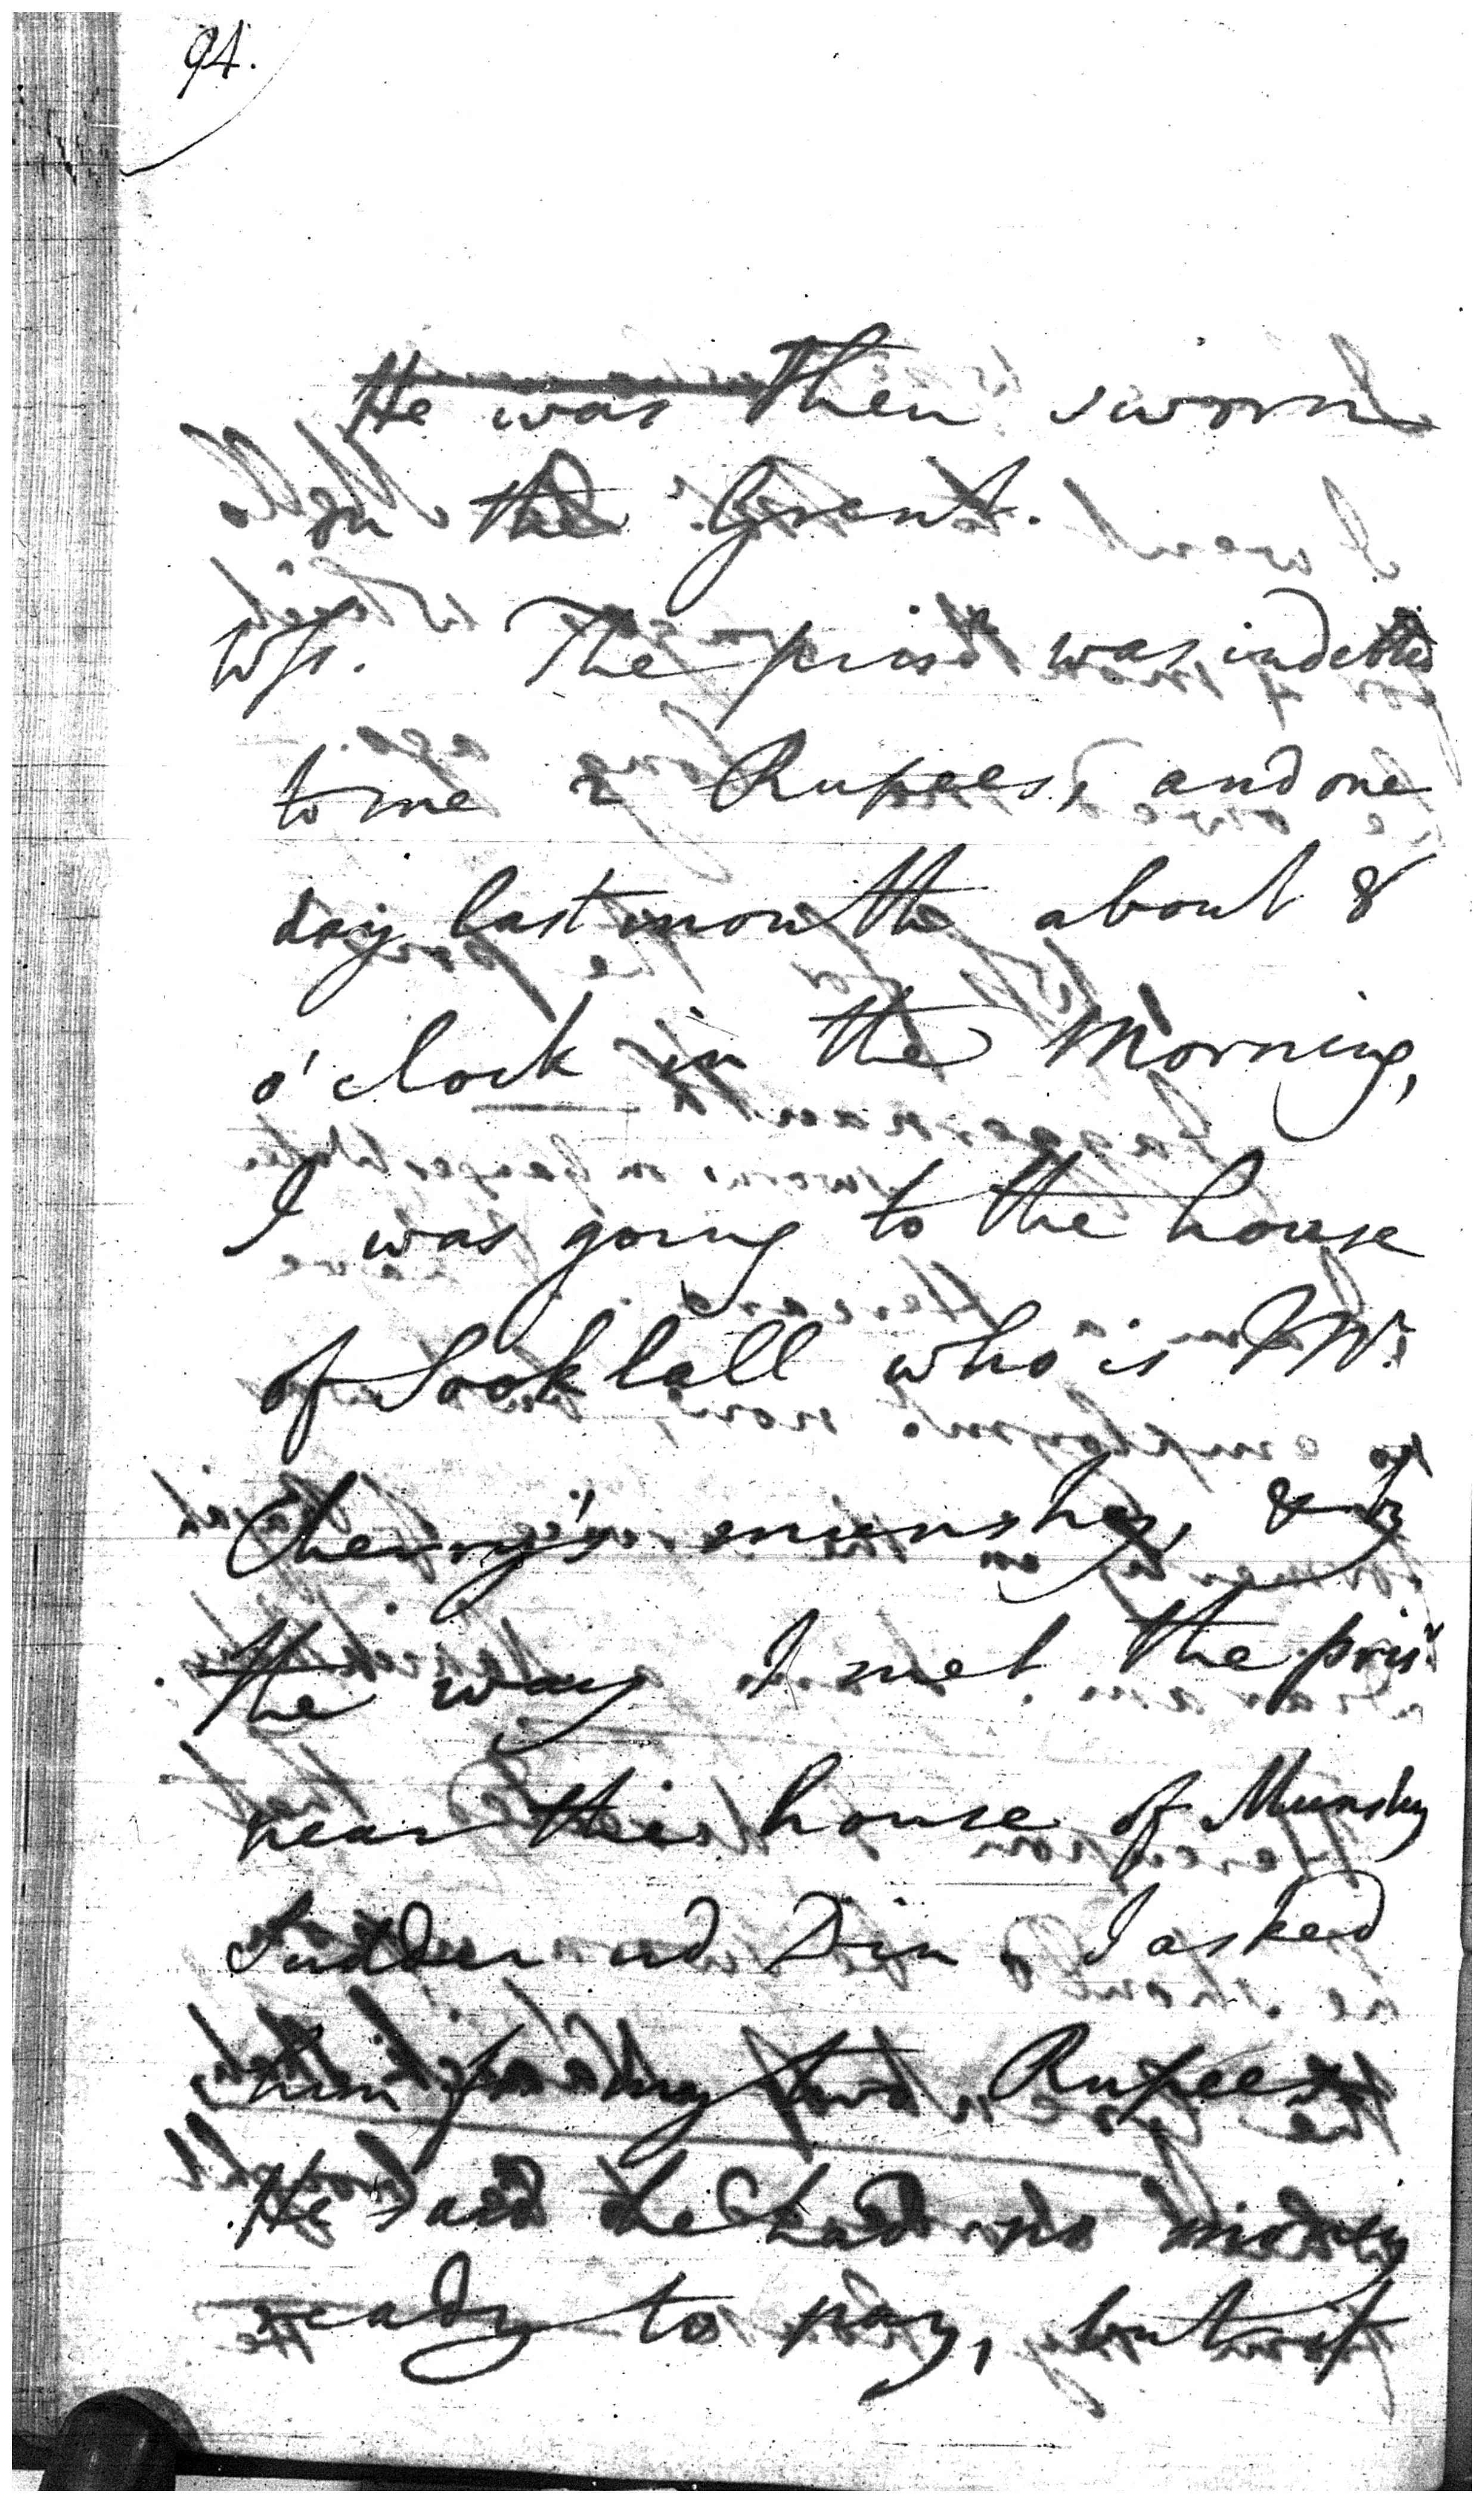 94.
He was then sworn
on the Grent.
Wss. The prisr was indebted
to me 2 Rupees, and one
day last month about 8
o'clock in the Morning,
I was going to the house
of Sooklall who is Mr.
Cherry's munshy, &
the way I met the prisr
near the house of Munshy
Sudder ud Din. I asked
him for my two Rupees.
He said he had no money
ready to pay, but if